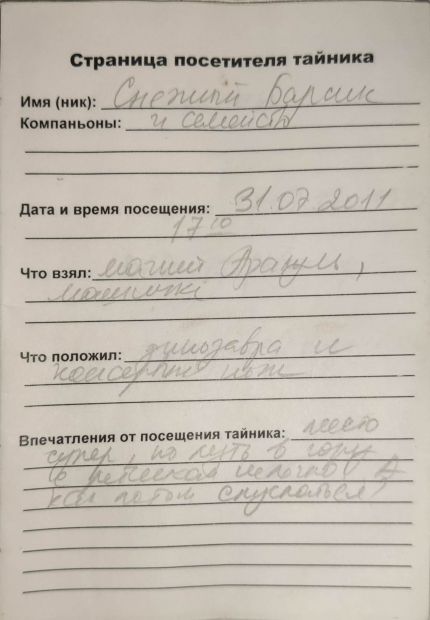 Страница посетителя тайника
Имя (ник): Снежный Барсик
Компаньоны: и семейство
Дата и время посещения: 31.07.2011
17 10
Что взял: магнит
Что положил: динозавра и
нож
Впечатления от посещения тайника: место
супер, но путь в гору
с
как потом спускаться